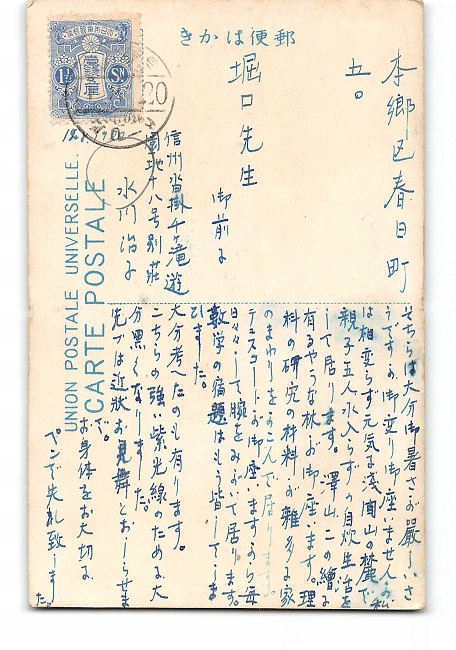 郵便はかき
本郷区春日町
五〇
堀口先生
御前に
信州沓掛千ヶ滝遊
園地十八号別荘
水川治子
そちらは大分御暑さが嚴しいさ
うですが御変り御座いませんか私
は相変らず元気で浅間山の麓で
親子五人水入らずの自炊生活を
して居ります。澤山この繪に
有るやうな林が御座います。理
科の研究の材料が雑多に家
のまわりをかこんで居ります。
テニスコートが御座いますから毎
日々々して腕をみがいて居ります。
数学の宿題はもう皆してしま
ひました。
大分考へたのも有ります。
こちらの強い紫光線のため大
分黒くなりました。
先づは近状お見舞とおしらせま
で。
お身体をお大切に
ペンで失礼致しまし
た。
UNION POSTALE UNIVERSELLE.
CARTE POSTALE
大日本帝國郵便
壹錢五厘
1½ Sn